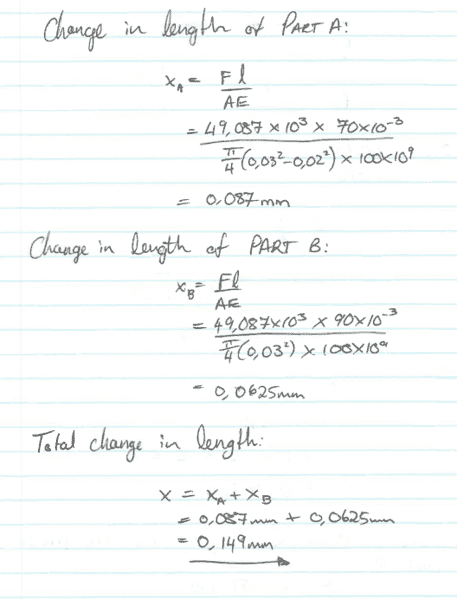 Change in length of PART A:
x_A = Fl
AE
= 49,087 × 10³ × 70×10⁻³
π/4 (0,03²-0,02²) × 100×10⁹
= 0,087mm
Change in length of PART B:
x_B = Fl
AE
= 49,087×10³ × 90×10⁻³
π/4 (0,03²) × 100×10⁹
= 0,0625mm
Total change in length:
x = x_A + x_B
= 0,087mm + 0,0625mm
= 0,149mm